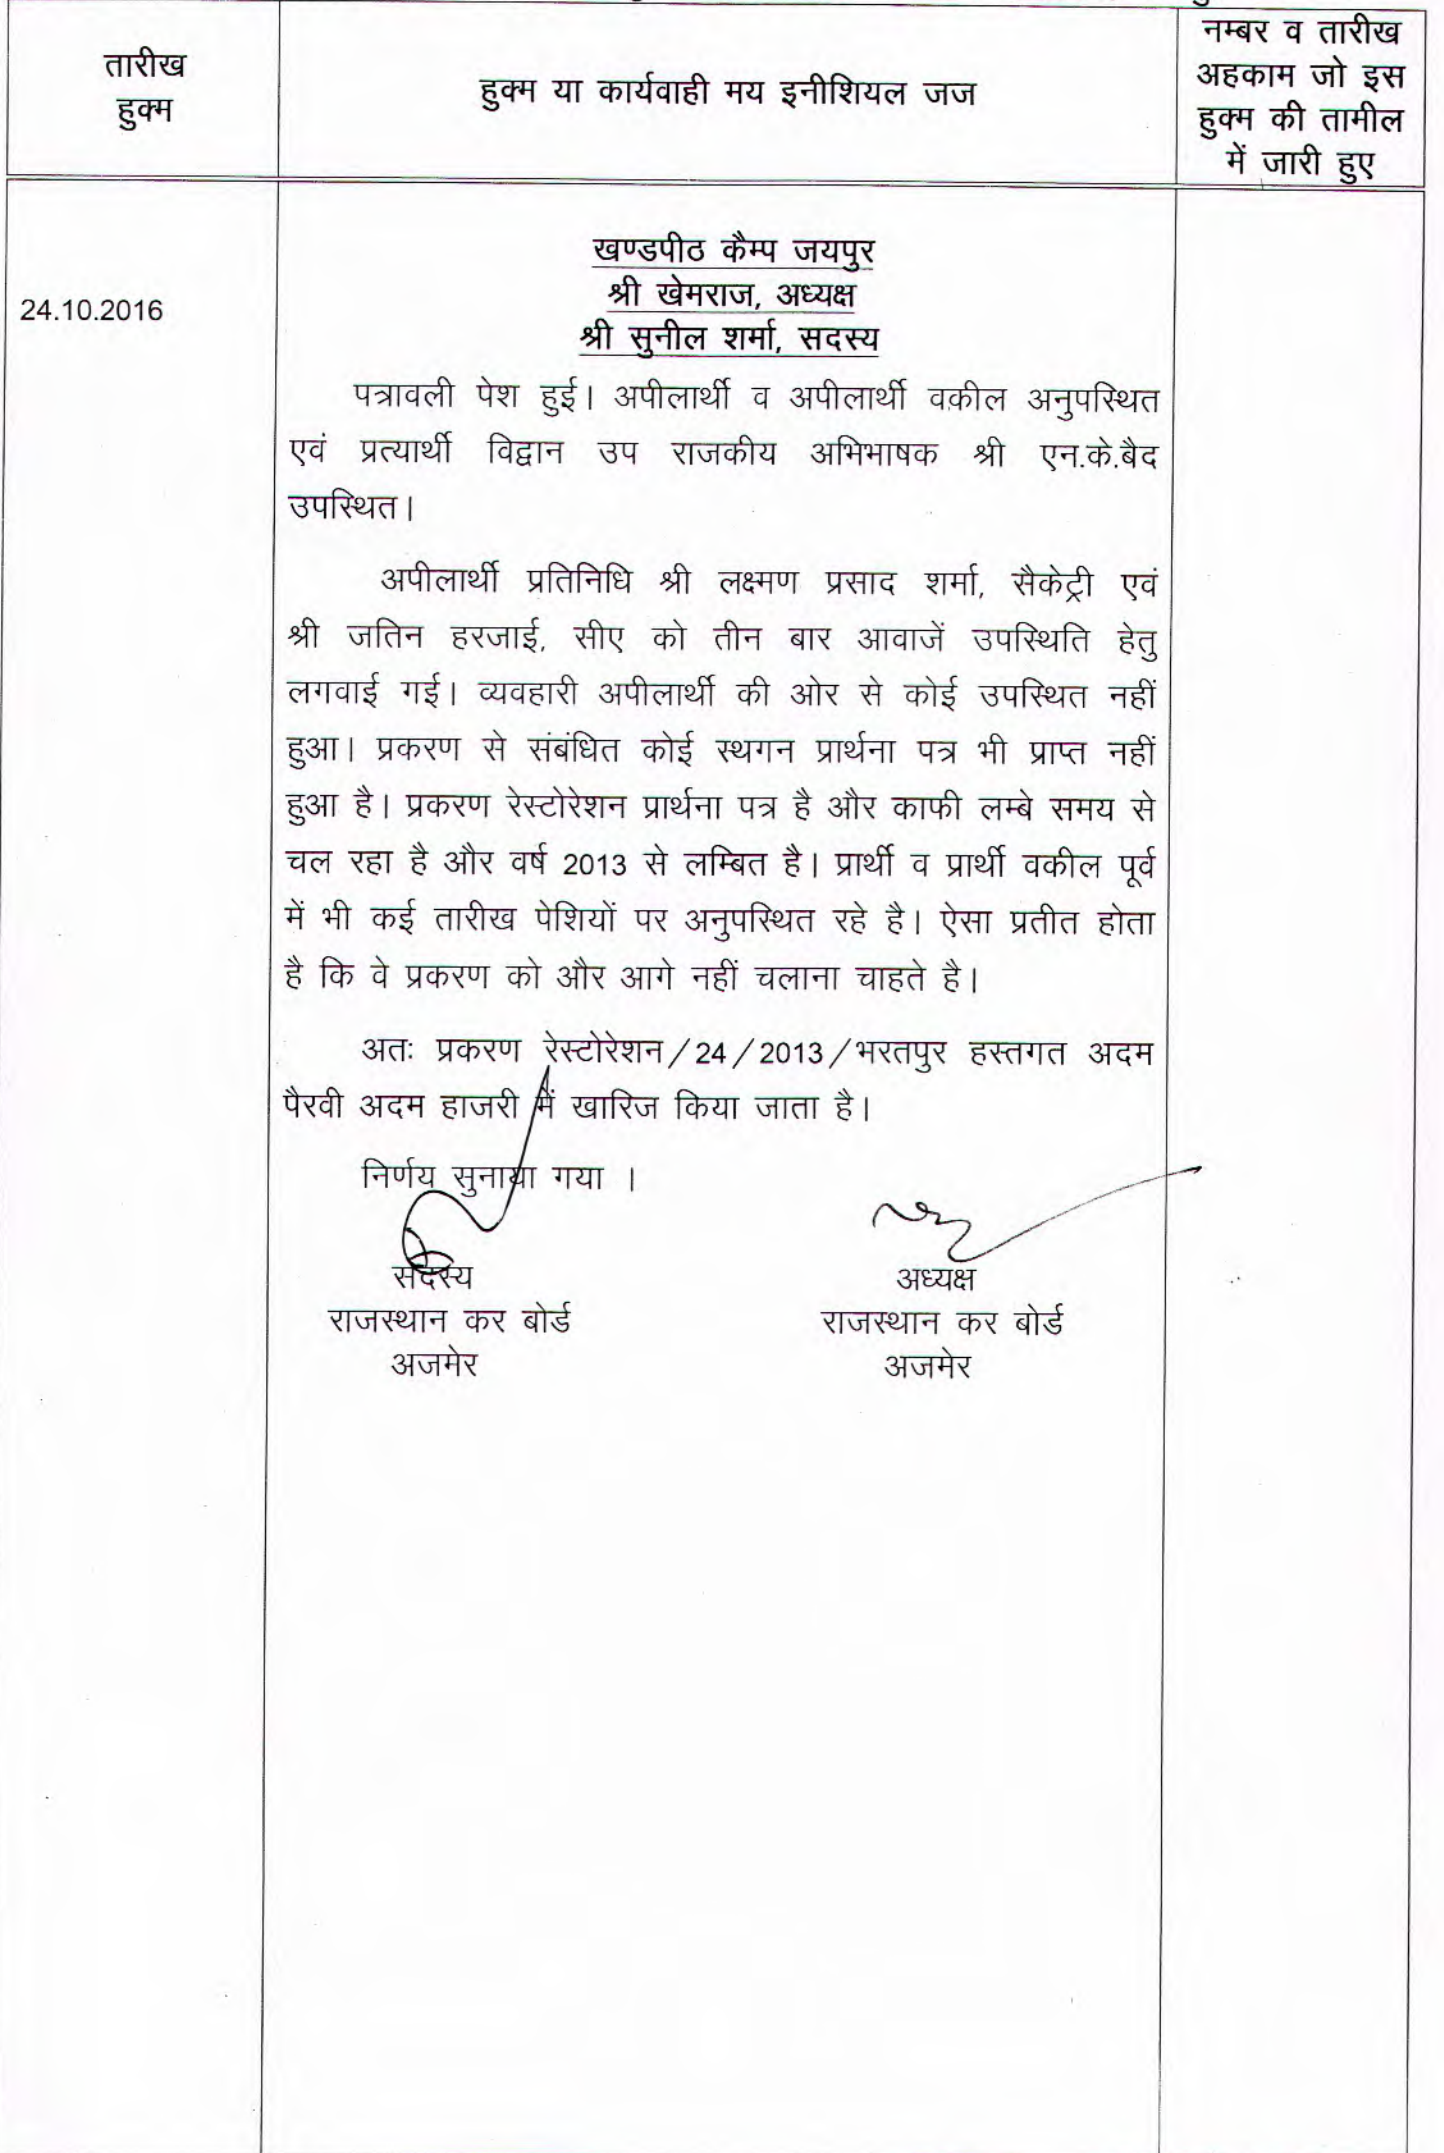 तारीख
हुक्म
हुक्म या कार्यवाही मय इनीशियल जज
नम्बर व तारीख
अहकाम जो इस
हुक्म की तामील
में जारी हुए
24.10.2016
खण्डपीठ कैम्प जयपुर
श्री खेमराज, अध्यक्ष
श्री सुनील शर्मा, सदस्य
पत्रावली पेश हुई। अपीलार्थी व अपीलार्थी वकील अनुपस्थित
एवं प्रत्यार्थी विद्वान उप राजकीय अभिभाषक श्री एन.के.बैद
उपस्थित।
अपीलार्थी प्रतिनिधि श्री लक्ष्मण प्रसाद शर्मा, सैकेट्री एवं
श्री जतिन हरजाई, सीए को तीन बार आवाजें उपस्थिति हेतु
लगवाई गई। व्यवहारी अपीलार्थी की ओर से कोई उपस्थित नहीं
हुआ। प्रकरण से संबंधित कोई स्थगन प्रार्थना पत्र भी प्राप्त नहीं
हुआ है। प्रकरण रेस्टोरेशन प्रार्थना पत्र है और काफी लम्बे समय से
चल रहा है और वर्ष 2013 से लम्बित है। प्रार्थी व प्रार्थी वकील पूर्व
में भी कई तारीख पेशियों पर अनुपस्थित रहे है। ऐसा प्रतीत होता
है कि वे प्रकरण को और आगे नहीं चलाना चाहते है।
अतः प्रकरण रेस्टोरेशन/24/2013/भरतपुर हस्तगत अदम
पैरवी अदम हाजरी में खारिज किया जाता है।
निर्णय सुनाया गया ।
सदस्य
राजस्थान कर बोर्ड
अजमेर
अध्यक्ष
राजस्थान कर बोर्ड
अजमेर